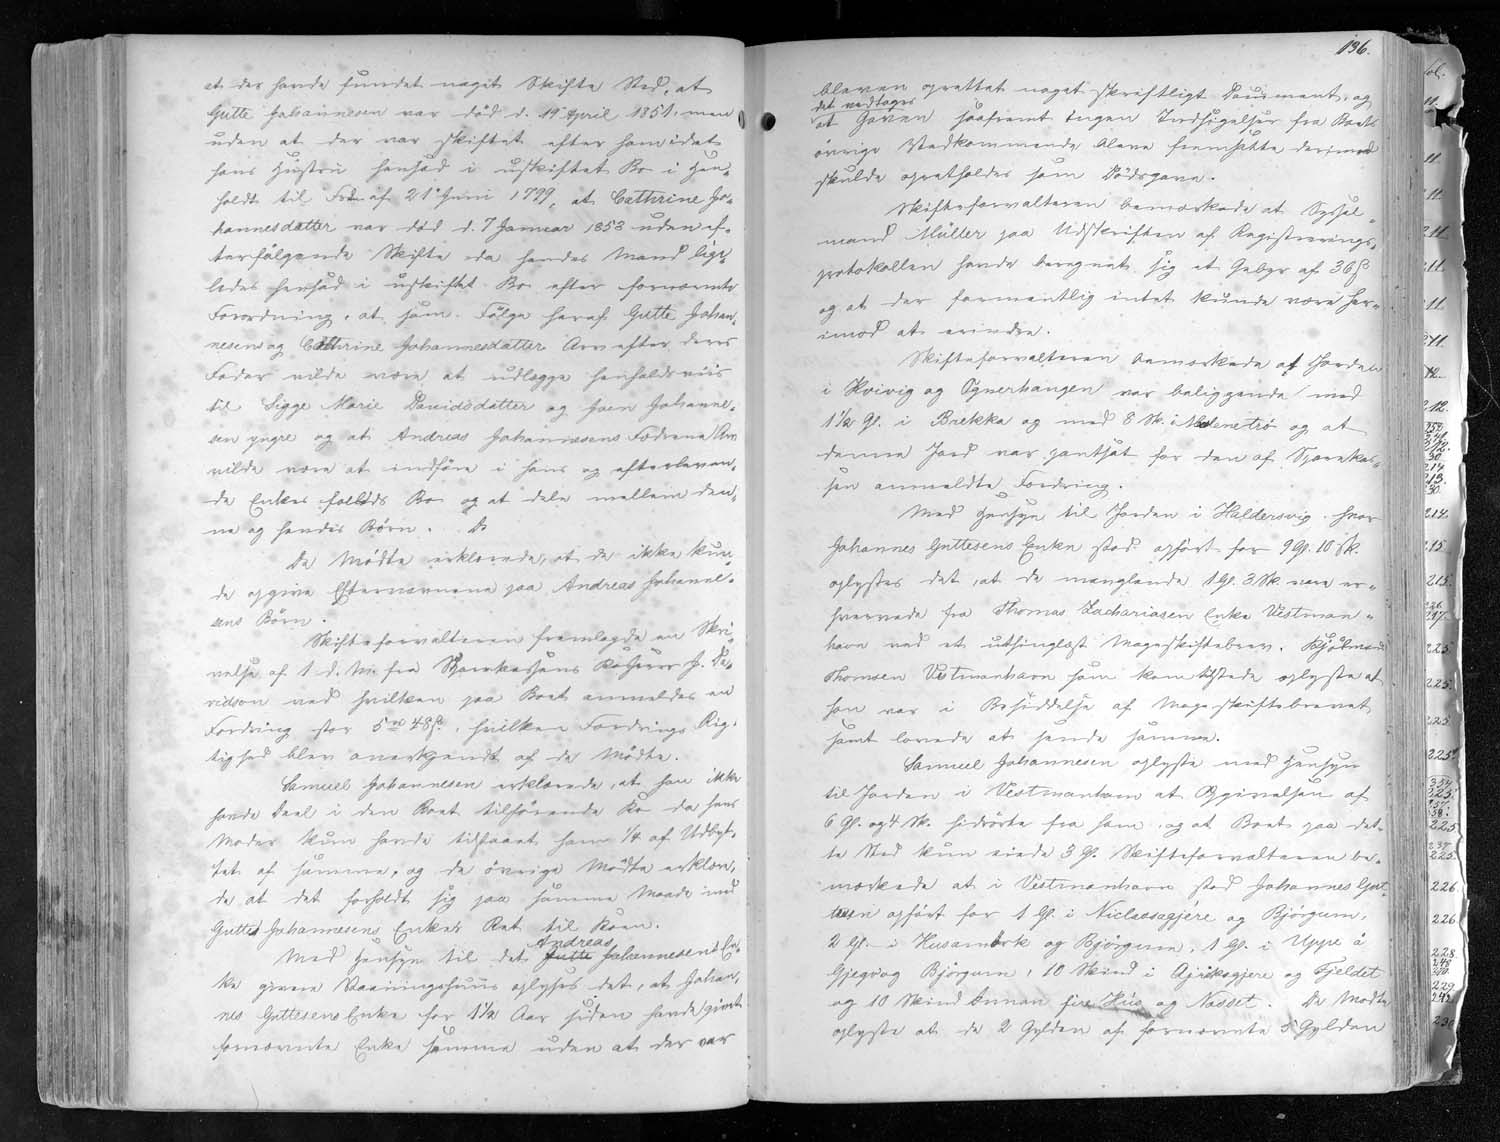 at der havde fundet noget Skifte Sted, at
Gutte Johannesen var död d. 19 April 1851, men
uden at der var skiftet efter ham idet
hans Hustru hensad i uskiftet Bo i Hen-
hold til Fr. af 21 Juni 1799, at Cathrine Jo-
hannesdatter var död d. 7 Januar 1853 uden ef-
terfölgende Skifte da hendes Mand lige-
ledes hensad i uskiftet Bo efter fornævnte
Forordning, at som Fölge heraf Gutte Johan-
nesens og Cathrine Johannesdatters Arv efter deres
Fader vilde være at udlægge henholdsviis
til Sigge Marie Davidsdatter og Joen Johanne-
sen yngre og at Andreas Johannesens Fædrene Arv
vilde være at indföre i hans og efterleven-
de Enkes fælleds Bo og at dele mellem den-
ne og hendes Börn.
De Mödte erklærede, at de ikke kun-
de opgive Efternavnene paa Andreas Johanne-
sens Börn.
Skifteforvalteren fremlagde en Skri-
velse af 1 d. M. fra Sparekassens Kasserer J. Da-
vidson ved hvilken paa Boet anmeldes en
Fordring stor 5 rd 48 s., hvilken Fordrings Rig-
tighed blev anerkjendt af de Mödte.
Samuel Johannesen erklærede, at han ikke
havde Deel i den Boet tilhörende Ko da hans
Moder kun havde tilstaaet ham 1/4 af Udbyt-
tet af samme, og de övrige Mödte erklære-
de at det forholdt sig paa samme Maade med
Gutte Johannesens Enkes Ret til Koen.
Med Hensyn til det Andreas Johannesens En-
ke givne Vaaningshuus oplystes det, at Johan-
nes Guttesens Enke for 1 1/2 Aar siden havde givet
fornævnte Enke samme uden at der var
136.
bleven oprettet noget skriftligt Document, og
det vedtoges
at Gaven saafremt ingen Indsigelser fra Boets
övrige Vedkommende bleve fremsatte derimod
skulde opretholdes som Dödsgave.
Skifteforvalteren bemærkede at Syssel-
mand Müller paa Udskriften af Registrerings-
protokollen havde beregnet sig et Gebyr af 36 s
og at der formentlig intet kunde være her-
imod at erindre.
Skifteforvalteren bemærkede at Jorden
i Kvivig og Ognerhangen var beliggende med
1 1/2 Gl. i Brekka og med 8 Sk. i og at
denne Jord var pantsat for den af Sparekas-
sen anmeldte Fordring.
Med Hensyn til Jorden i Haldersvig hvor
Johannes Guttesens Enke stod opfört for 9 Gl. 10 Sk.
oplystes det, at de manglende 1 Gl. 3 Sk. vare er-
hvervede fra Thomas Zachariasen Enke Vestman-
havn ved et uthinglæst Mageskiftebrev.
Thomsen Vestmanhavn som kom tilstede oplyste at
han var i Besiddelse af Mageskiftebrevet
samt lovede at sende samme.
Samuel Johannesen oplyste med Hensyn
til Jorden i Vestmanhavn at Opgivelsen af
6 Gl. og 4 Sk. hidrörte fra ham, og at Boet paa det-
te Sted kun eiede 3 Gl. Skifteforvalteren be-
mærkede at i Vestmanhavn stod Johannes Gut-
tesen opfört for 1 Gl. i Niclasagjære og Björgum,
2 Gl. i Husamörk og Björgum, 1 Gl. i Uppe á
Gjegv og Björgum, 10 Skind i Ajriksgjere og Fjeldet
og 10 Skind Innan fire Hus og Nasset. De Mödte
oplyste at de 2 Gylden af fornævnte 5 Gylden